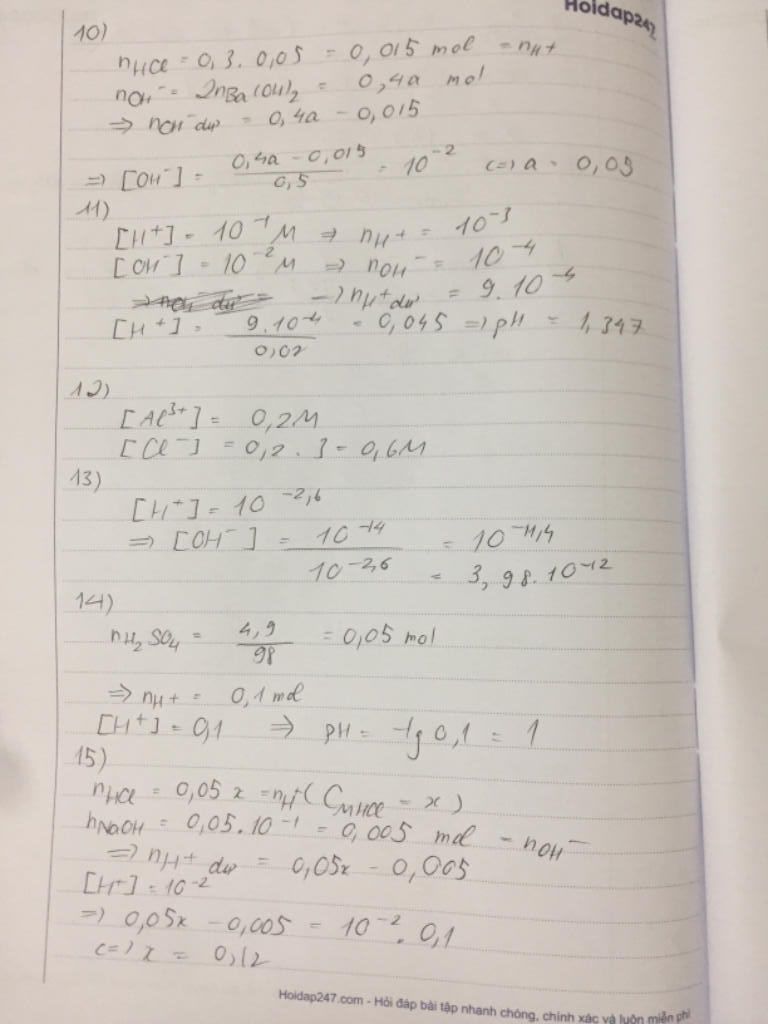 Hoidap247
10)
nHCl = 0,3 . 0,05 = 0,015 mol = nH+
nOH⁻ = 2nBa(OH)₂ = 0,4a mol
=> nOH⁻ dư = 0,4a - 0,015
=> [OH⁻] = (0,4a - 0,015)/0,5 = 10⁻² <=> a = 0,05
11)
[H⁺] = 10⁻¹ M => nH+ = 10⁻³
[OH⁻] = 10⁻² M => nOH⁻ = 10⁻⁴
=> nH⁺ dư = 9.10⁻⁴
[H⁺] = 9.10⁻⁴/0,02 = 0,045 => pH = 1,347
12)
[Al³⁺] = 0,2M
[Cl⁻] = 0,2 . 3 = 0,6M
13)
[H⁺] = 10⁻²,⁶
=> [OH⁻] = 10⁻¹⁴/10⁻²,⁶ = 10⁻¹¹,⁴
= 3,98.10⁻¹²
14)
nH₂SO₄ = 4,9/98 = 0,05 mol
=> nH+ = 0,1 mol
[H⁺] = 0,1 => pH = -lg 0,1 = 1
15)
nHCl = 0,05x = nH⁺ (CMHCl = x)
nNaOH = 0,05.10⁻¹ = 0,005 mol = nOH⁻
=> nH+ dư = 0,05x - 0,005
[H⁺] = 10⁻²
=> 0,05x - 0,005 = 10⁻² . 0,1
<=> x = 0,12
Hoidap247.com - Hỏi đáp bài tập nhanh chóng, chính xác và luôn miễn phí